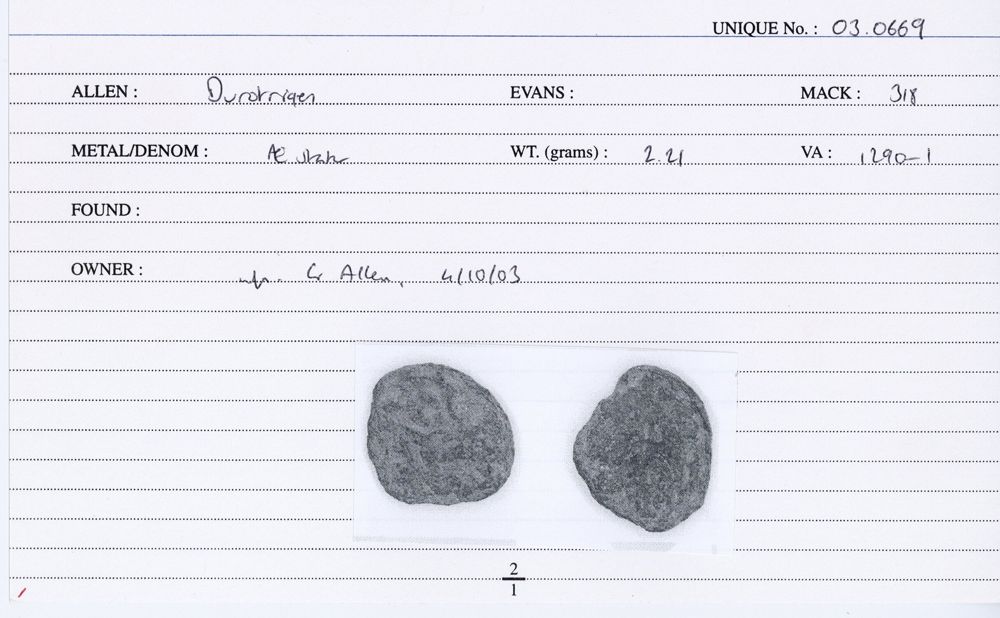 UNIQUE No. : 03.0669
ALLEN : Durotriges EVANS : MACK : 318
METAL/DENOM : Æ stater WT. (grams) : 2.21 VA : 1290-1
FOUND :
OWNER : G Allen, 4/10/03
2
1